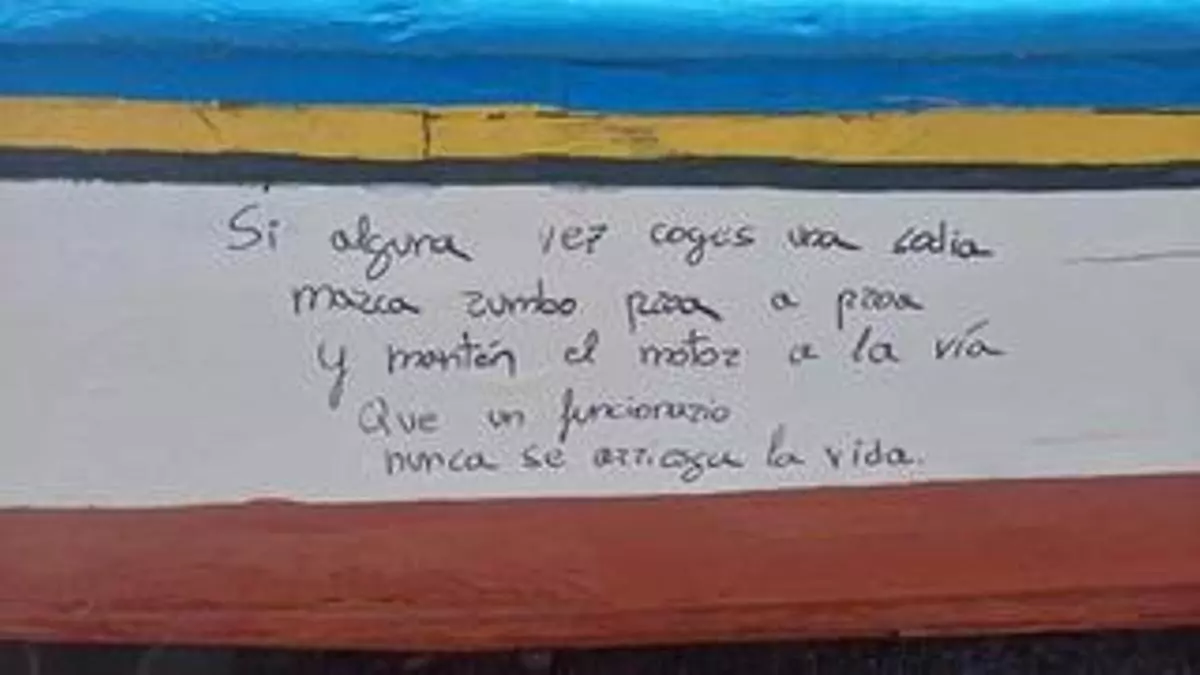 Si alguna vez coges una
marca rumbo proa a proa
y mantén el motor a la vía
Que un funcionario
nunca se arriesga la vida.